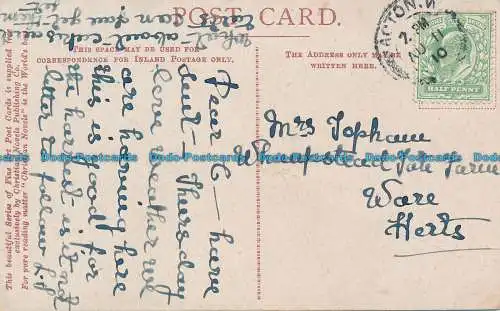 POST CARD.
THIS SPACE MAY BE USED FOR
CORRESPONDENCE FOR INLAND POSTAGE ONLY.
THE ADDRESS ONLY MAY BE
WRITTEN HERE.
This beautiful Series of Fine Art Post Cards is supplied free
exclusively by Christian Novels Publishing Co.
For pure reading matter "Christian Novels" is the World's best
What about cakes
can you get
Dear C – have
sent Thursday
Love weather we
are having here
this is good for
the harvest is it not
letter to follow
Mrs Topham
Ware
Herts
ACTON. W
7. PM
AU 11
10
HALF PENNY
Dodo-Postcards Dodo-Postcards Dodo-Postcards Dodo-Postcards